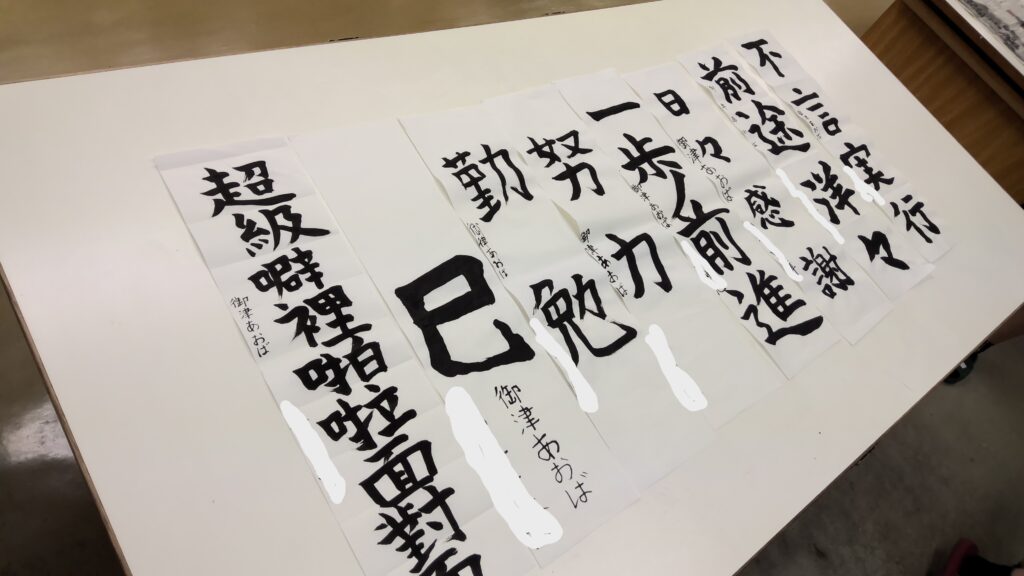 不言実行
前途洋々
日々感謝
御津あおば
一歩前進
御津あおば
努力
御津あおば
勤勉
御津あおば
巳
御津あおば
超級噼裡啪啦面對
御津あおば